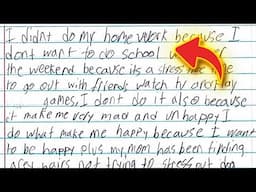 I didnt do my home work because I
dont want to do school
the weekend because its a stress
to go out with friends watch tv or play
games, I dont do it also because
it make me very mad and unhappy I
do what make me happy because I want
to be happy plus my mom has been finding
grey hairs not trying to stress out